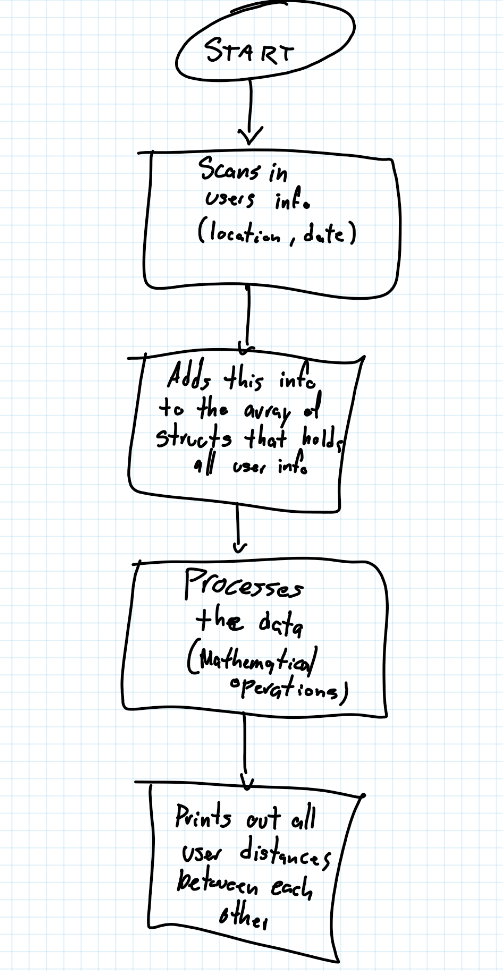 START
Scans in
users info
(location, date)
Adds this info
to the array of
structs that holds
all user info
Processes
the data
(Mathematical
operations)
Prints out all
user distances
between each
other